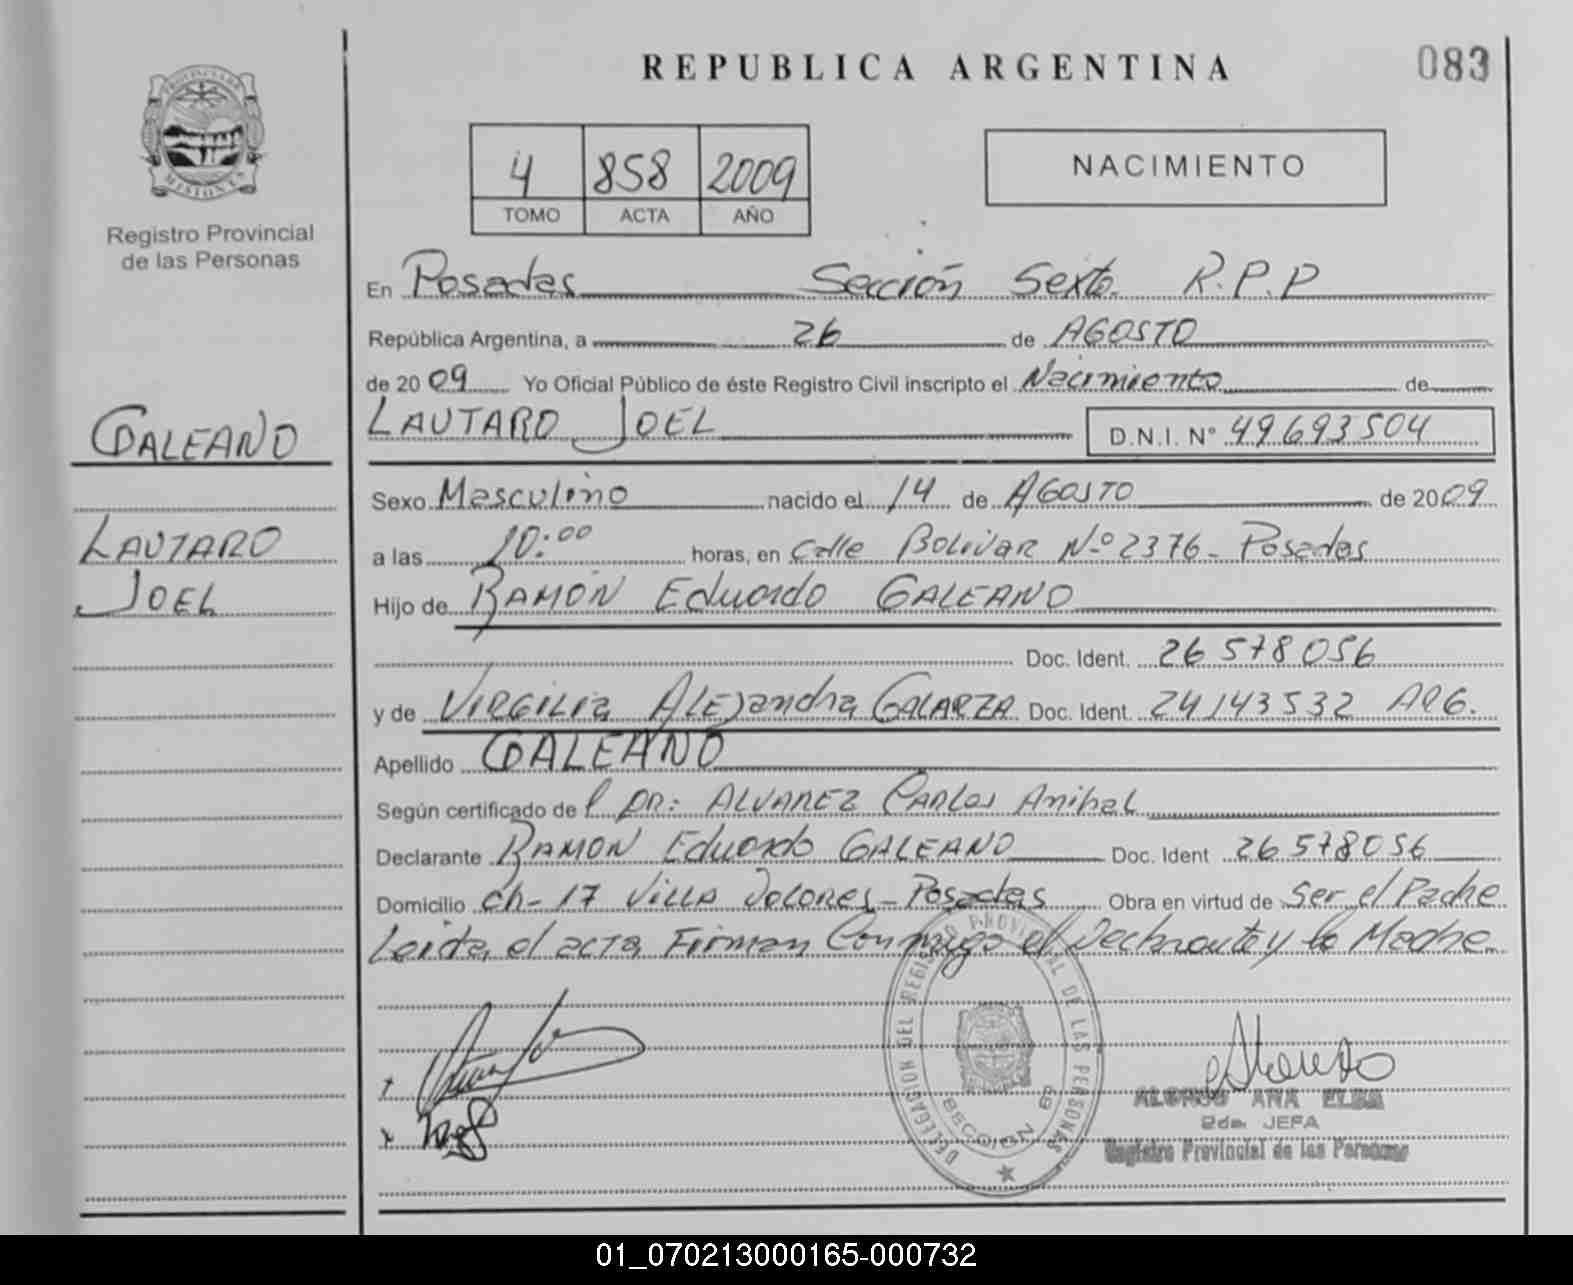 REPUBLICA ARGENTINA
083
PROVINCIA DE
MISIONES
Registro Provincial
de las Personas
4 858 2009
TOMO ACTA AÑO
NACIMIENTO
En Posadas Sección Sexta R.P.P
República Argentina, a 26 de AGOSTO
de 2009 Yo Oficial Público de éste Registro Civil inscripto el Nacimiento de
GALEANO
LAUTARO JOEL D.N.I. Nº 49693504
Sexo Masculino nacido el 14 de AGOSTO de 2009
LAUTARO
JOEL
a las 10:00 horas, en Calle BOLIVAR Nº 2376 - Posadas
Hijo de RAMÓN Eduardo GALEANO
Doc. Ident. 26578056
y de VIRGILIA ALEJandra GALARZA Doc. Ident. 24143532 ARG.
Apellido GALEANO
Según certificado de l DR: ALVAREZ CARLOS Anibal
Declarante RAMON Eduardo GALEANO Doc. Ident 26578056
Domicilio Ch- 17 VILLA DOLORES - Posadas Obra en virtud de Ser el Padre
Leida el acta, Firman Conmigo el Declarante y la Madre
DELEGACION DEL REGISTRO PROVINCIAL DE LAS PERSONAS
SECCION 6ª
ALONSO ANA ELBA
2da. JEFA
Registro Provincial de las Personas
01_070213000165-000732